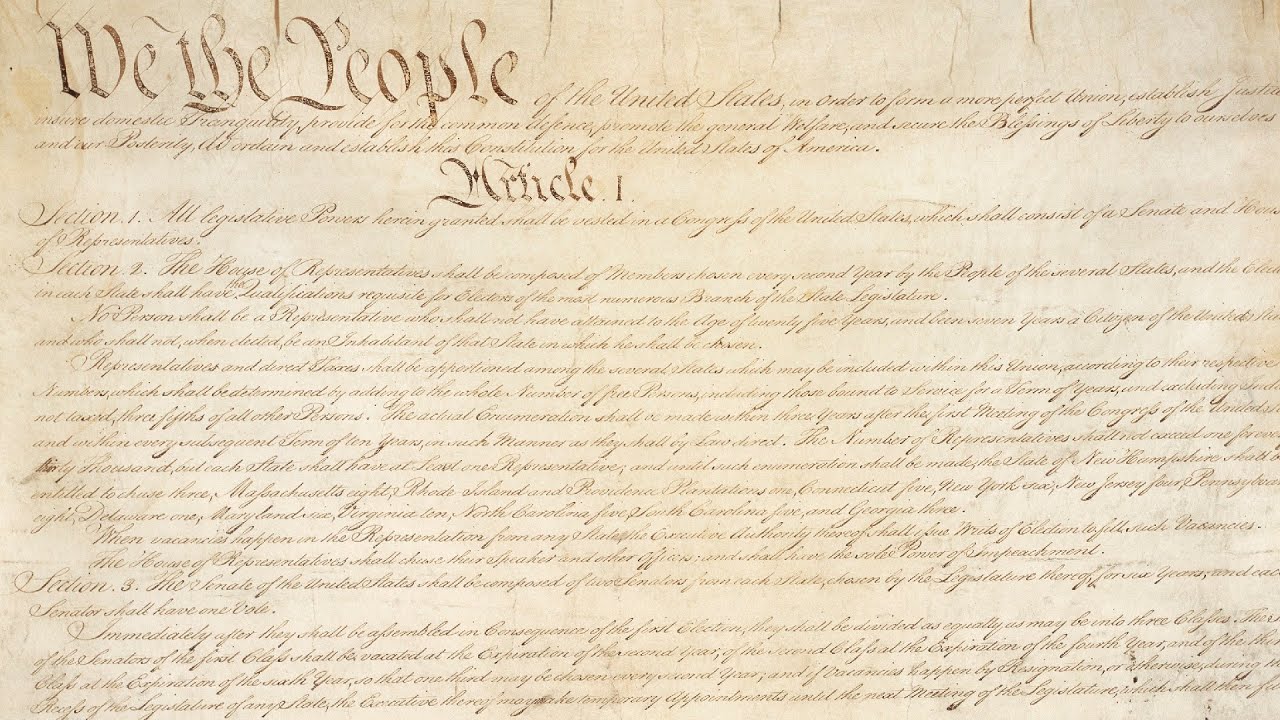 We the People of the United States, in Order to form a more perfect Union, establish Justice
insure domestic Tranquility, provide for the common defence, promote the general Welfare, and secure the Blessings of Liberty to ourselves
and our Posterity, do ordain and establish this Constitution for the United States of America.
Article. I.
Section. 1. All legislative Powers herein granted shall be vested in a Congress of the United States, which shall consist of a Senate and Hous
of Representatives.
Section. 2. The House of Representatives shall be composed of Members chosen every second Year by the People of the several States, and the Elec
in each State shall have the Qualifications requisite for Electors of the most numerous Branch of the State Legislature.
No Person shall be a Representative who shall not have attained to the Age of twenty five Years, and been seven Years a Citizen of the United Sta
and who shall not, when elected, be an Inhabitant of that State in which he shall be chosen.
Representatives and direct Taxes shall be apportioned among the several States which may be included within this Union, according to their respective
Numbers, which shall be determined by adding to the whole Number of free Persons, including those bound to Service for a Term of Years, and excluding Indi
not taxed, three fifths of all other Persons. The actual Enumeration shall be made within three Years after the first Meeting of the Congress of the United St
and within every subsequent Term of ten Years, in such Manner as they shall by Law direct. The Number of Representatives shall not exceed one for eve
thirty Thousand, but each State shall have at Least one Representative; and until such enumeration shall be made, the State of New Hampshire shall be
entitled to chuse three, Massachusetts eight, Rhode Island and Providence Plantations one, Connecticut five, New York six, New Jersey four, Pennsylvan
eight, Delaware one, Maryland six, Virginia ten, North Carolina five, South Carolina five, and Georgia three.
When vacancies happen in the Representation from any State, the Executive Authority thereof shall issue Writs of Election to fill such Vacancies.
The House of Representatives shall chuse their Speaker and other Officers; and shall have the sole Power of Impeachment.
Section. 3. The Senate of the United States shall be composed of two Senators from each State, chosen by the Legislature thereof, for six Years; and eac
Senator shall have one Vote.
Immediately after they shall be assembled in Consequence of the first Election, they shall be divided as equally as may be into three Classes. The
of the Senators of the first Class shall be vacated at the Expiration of the second Year, of the second Class at the Expiration of the fourth Year, and of the thi
Class at the Expiration of the sixth Year, so that one third may be chosen every second Year; and if Vacancies happen by Resignation, or otherwise, during the
Recess of the Legislature of any State, the Executive thereof may make temporary Appointments until the next Meeting of the Legislature, which shall then fi